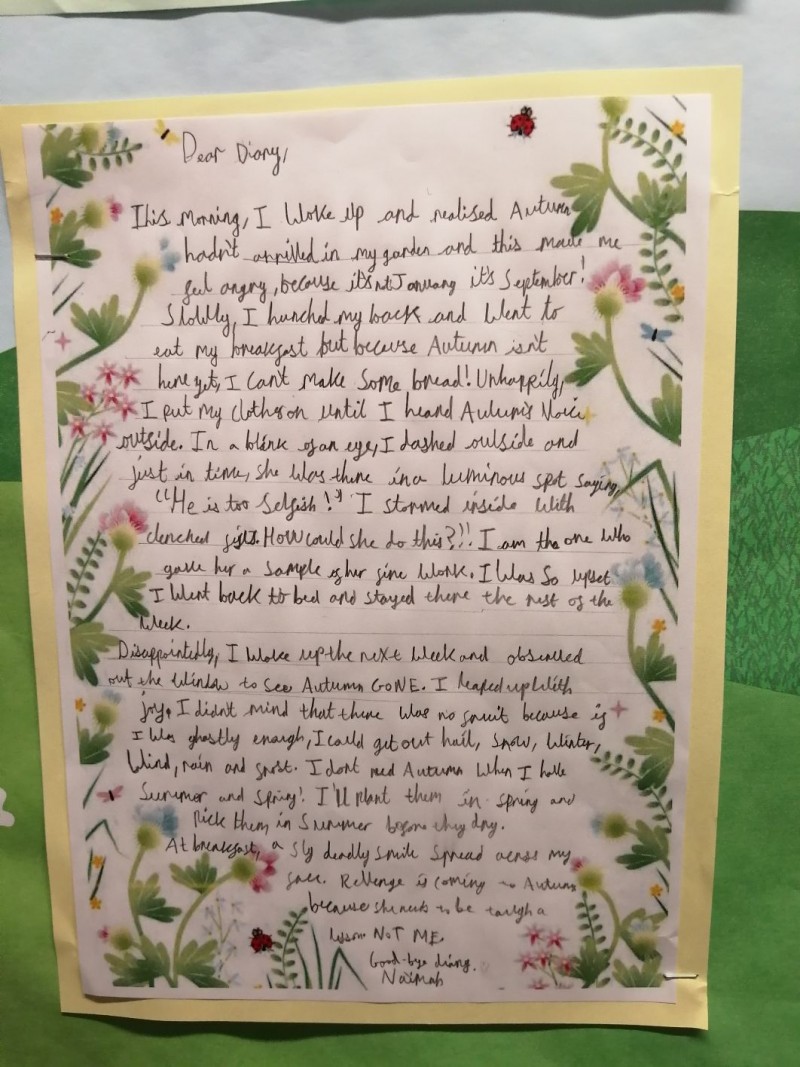 Dear Diary,
This morning, I woke up and realised Autumn
hadn't arrived in my garden and this made me
feel angry, because it's not January it's September!
Slowly, I hunched my back and went to
eat my breakfast but because Autumn isn't
here yet, I can't make some bread! Unhappily,
I put my clothes on until I heard Autum's Voice
outside. In a blink of an eye, I dashed outside and
just in time, she was there in a luminous spot saying,
"He is too selfish!" I stormed inside with
clenched fists. How could she do this?!! I am the one who
gave her a sample of her fine work. I was so upset
I went back to bed and stayed there the rest of the
week.
Disappointedly, I woke up the next week and observed
out the window to see Autumn GONE. I leaped up with
joy. I didn't mind that there was no fruit because if
I was ghostly enough, I could get out hail, snow, winter,
wind, rain and frost. I dont need Autumn when I have
Summer and Spring! I'll plant them in spring and
Pick them in Summer before they dry.
At breakfast, a sly deadly smile spread across my
face. Revenge is coming to Autumn
because she needs to be taught a
lesson NOT ME.
Good-bye diary.
Naimah